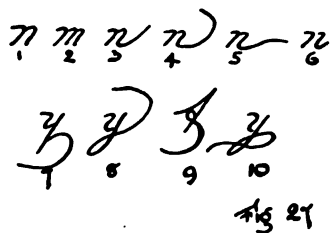 n m n n n n
1 2 3 4 5 6
y y y y
7 8 9 10
Fig 27